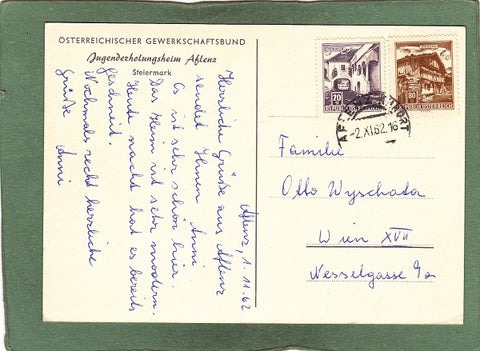 ÖSTERREICHISCHER GEWERKSCHAFTSBUND
Jugenderholungsheim Aflenz
Steiermark
Aflenz, 1. 11. 62
Herzliche Grüße aus Aflenz
sendet Ihnen Anni
Es ist sehr schön hier.
Das Heim ist sehr modern.
Heute nacht hat es bereits
geschneit.
Nochmals recht herzliche
Grüße Anni
70
80
REPUBLIK ÖSTERREICH
AFLENZ KURORT
-2.XI.62.16
Familie
Otto Wyschada
Wien XVII
Wesselgasse 9a